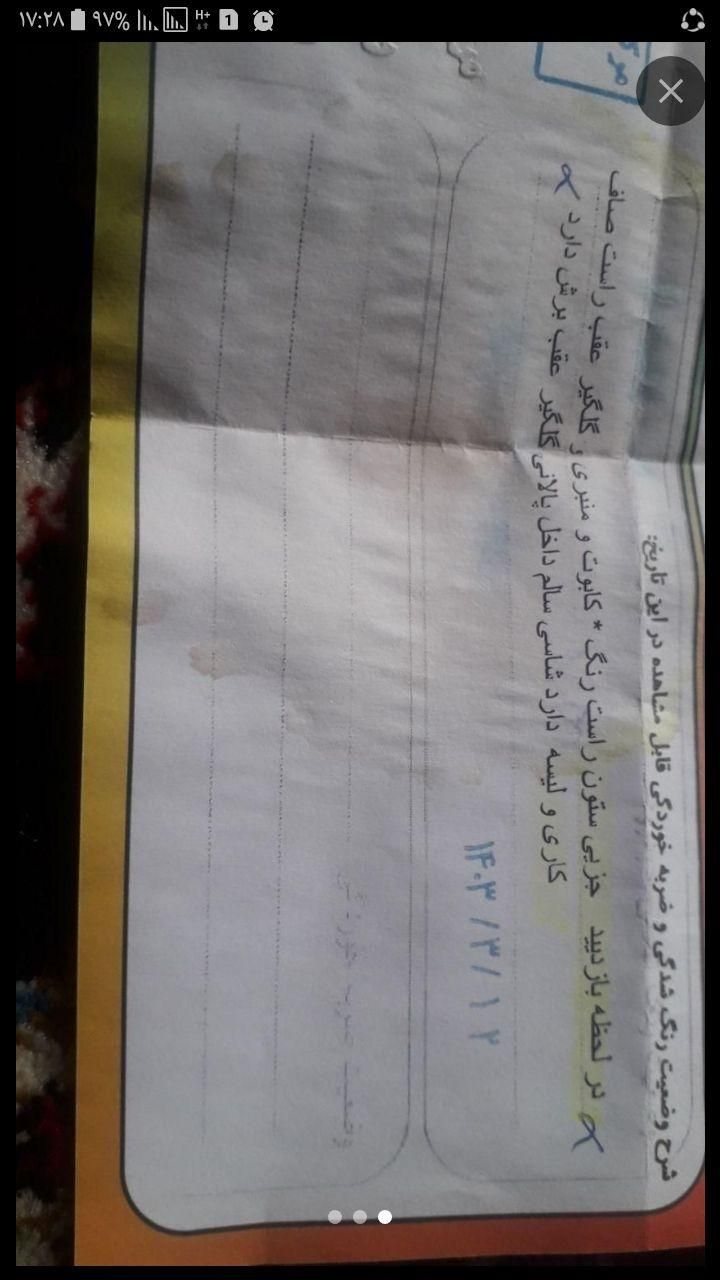 ۱۷:۲۸ ۹۷% H+ 1
شرح وضعیت رنگ شدگی و ضربه خوردگی قابل مشاهده در این تاریخ:
در لحظه بازدید جزیی ستون راست رنگ * کاپوت و منبری و گلگیر عقب راست صاف
کاری و لیسه دارد شاسی سالم داخل پالانی گلگیر عقب برش دارد
۱۴۰۳/۳/۱۲